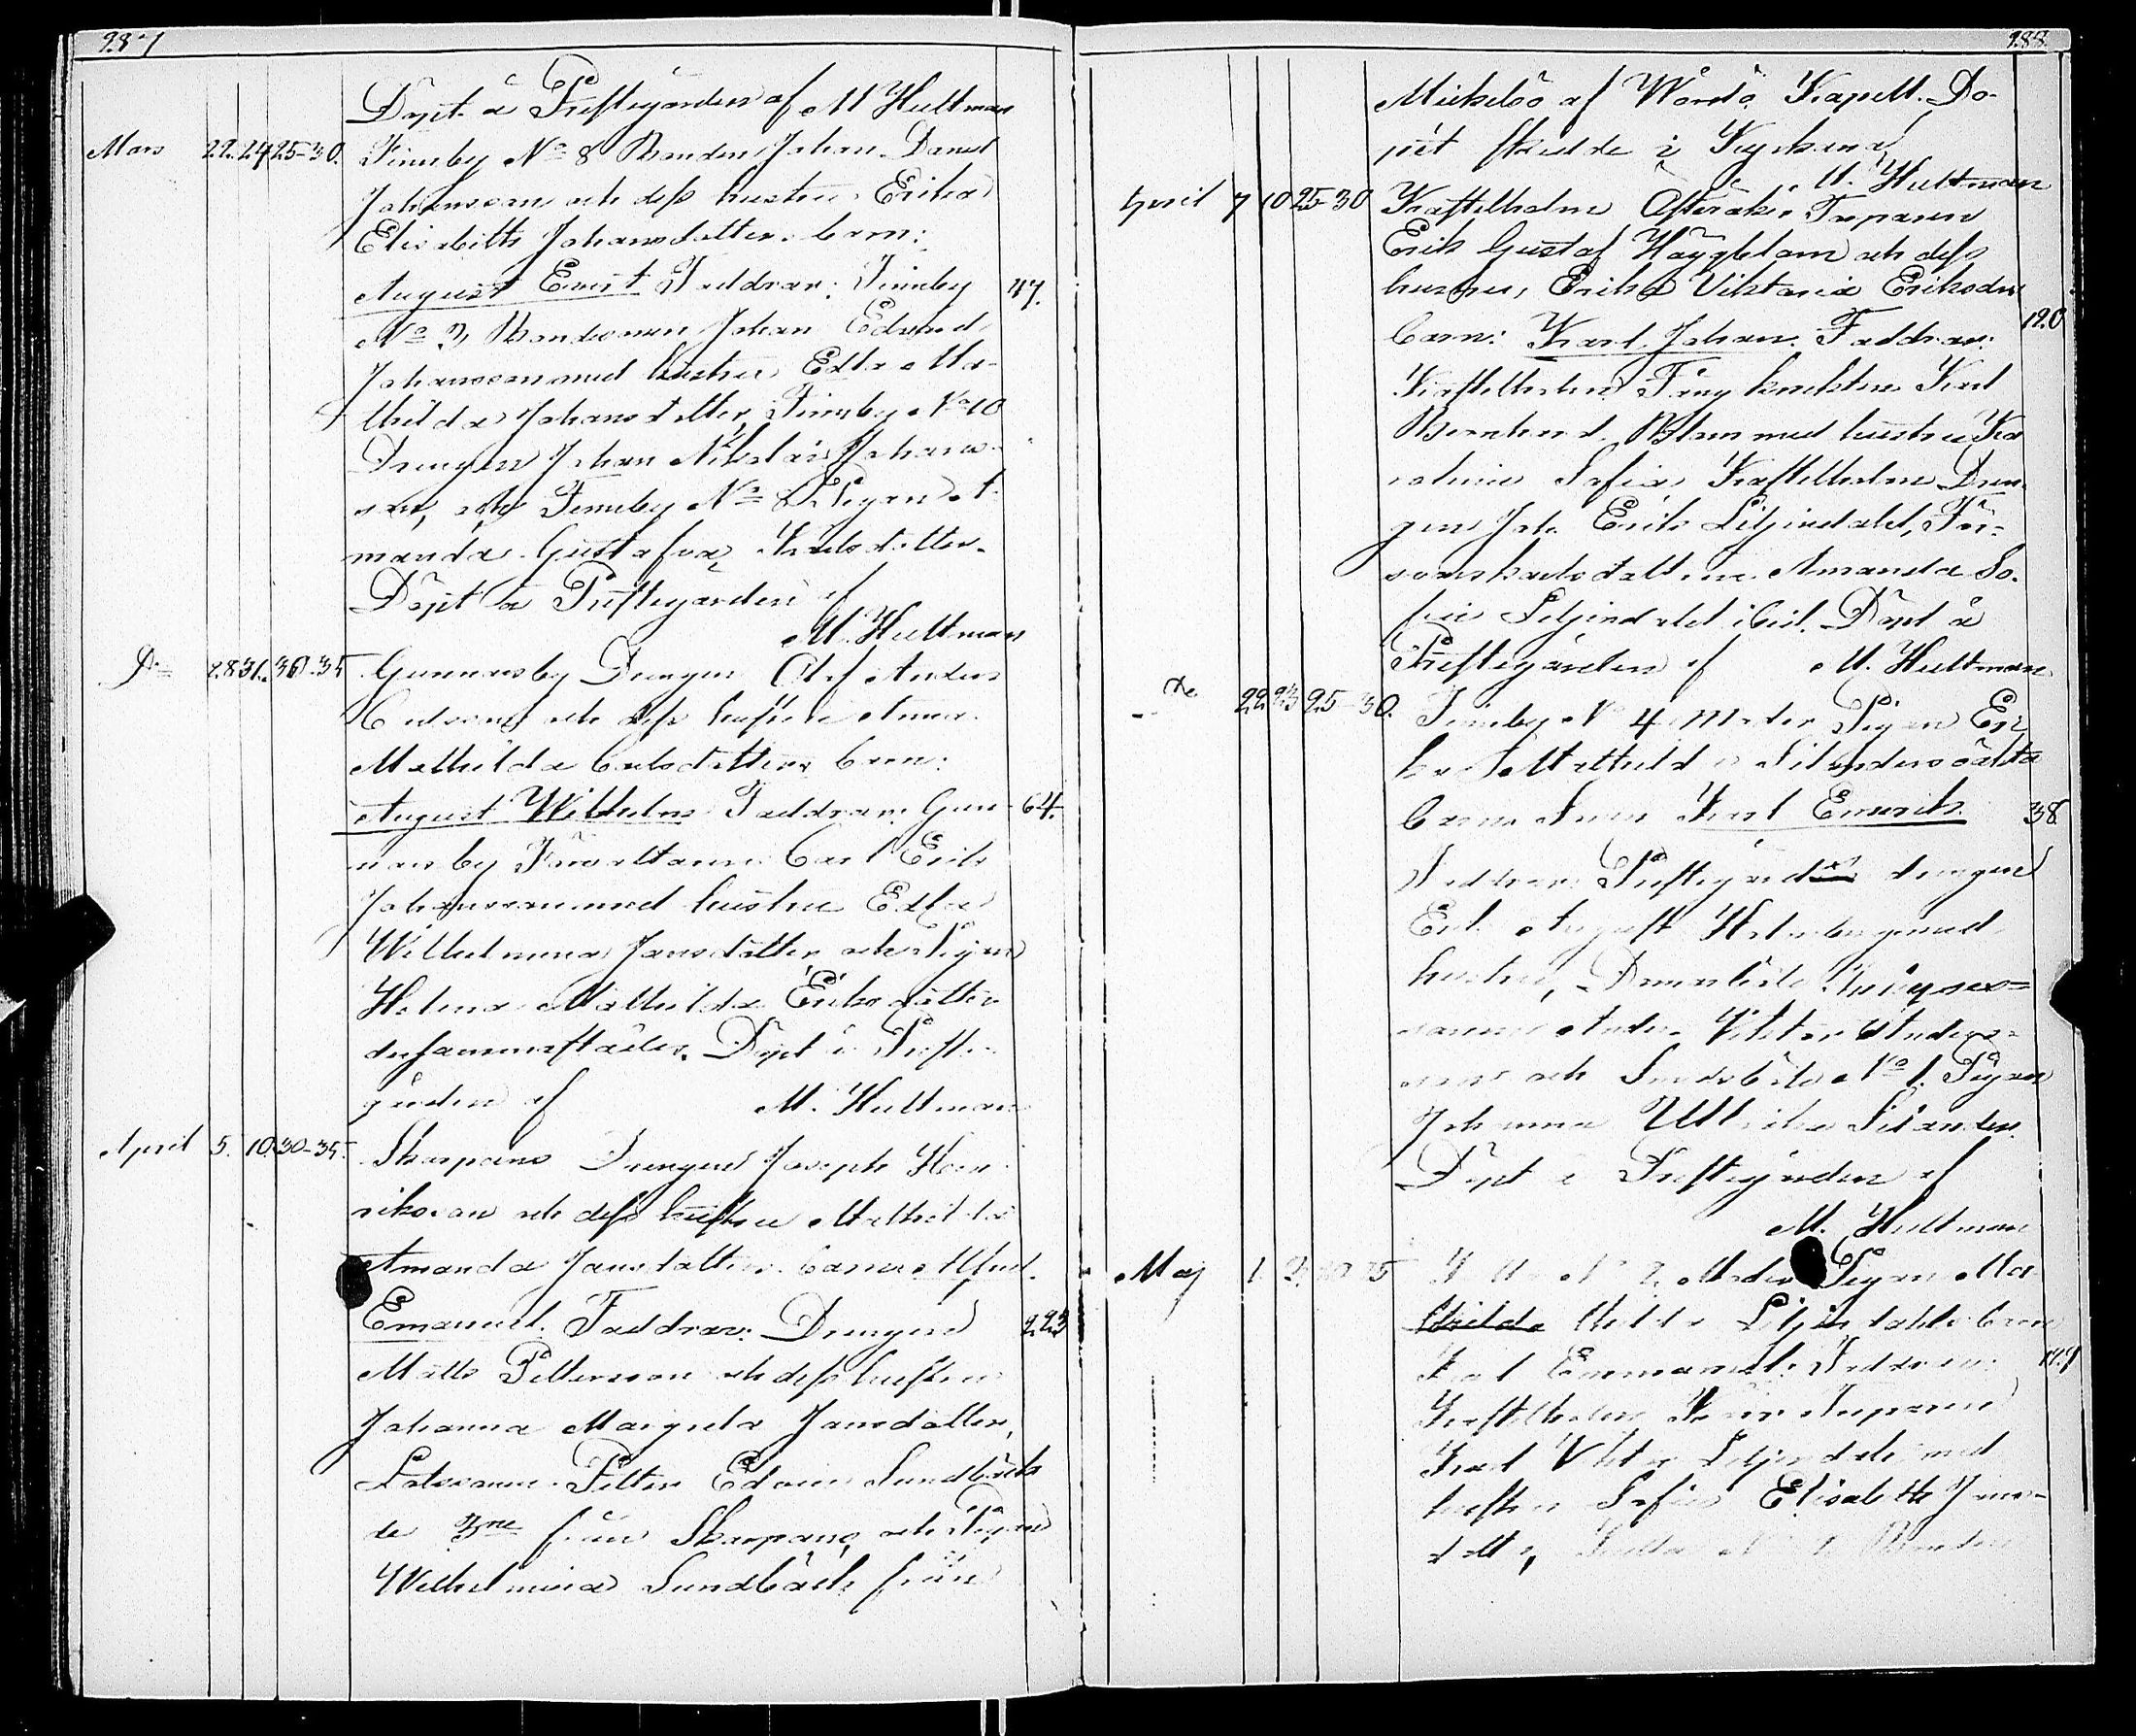 287
Döpt å Prestegården af M Hultman
Mars 22. 24 25-30. Finnby No 8 Bonden Johan Daniel
Johansson och dess hustru Erika
Elisabeth Johansdotter. Barn:
August Ernst Faddrar: Finnby 47.
No 3, Bondsonen Johan Edvard
Johansson med hustru Edla Ma-
thilda Johansdotter, Finnby No 10
Drengen Johan Nikolai Johans-
son, och Finnby No 8 Pigan A-
manda Gustafva Karlsdotter.
Döpt å Prestegården af
M. Hultman
Do 28 31. 30-35 Gunnarsby Drengen Olof Anders
Carlsson och dess hustru Anna
Mathilda Carlsdotter, Barn:
August Wilhelm Faddrar: Gun- 64.
narsby Förvaltaren Carl Erik
Johansson med hustru Edla
Wilhelmina Jansdotter och Pigan
Helena Mathilda Eriksdotter
dersammastädes. Döpt i Preste-
gården af M. Hultman
April 5. 10. 30-35. Skarpans Drengen Joseph Hen-
riksson och dess hustru Mathilda
Amanda Jansdotter. Barn: Alfred
Emanuel. Faddrar: Drengen 223
Matts Pettersson och dess hustru
Johanna Margreta Jansdotter,
Lotssonen Petter Edvin Sundbäck
de 3ne från Skarpans, och Pigan
Wilhelmina Sundbäck från
288
Mickelsö af Wårdö Kapell. Do-
pet skedde i Kyrkan af
M. Hultman
April 7 10 25-30 Kastelholm Österåker Torparen
Erik Gustaf Häggblom och dess
hustru, Erika Viktoria Eriksdr
Barn: Karl Johan. Faddrar: 120
Kastelholm Fångknekten Karl
Bernhard Blom med hustru Ka
rolina Sofia Kastelholm Dren-
gen Joh. Erik Liljendahl, För-
svarskarlsdottern Amanda So-
fia Liljendahl ibid. Döpt å
Prestegården af M. Hultman
Do 22 23 25-30. Finnby No 4 Moder Pigan Eri
ka Mathilda Silanders oäkta
Barn Karl Emerik. 38
Faddrar: Prestegårds drengen
Erik August Holmberg med
hustru,
Anders Viktor Anders-
son och No 1. Pigan
Johanna Ulrika Silander.
Döpt i Prestegården af
M. Hultman
Maj 1. Moder Pigan Ma
thilda Liljendahls Barn
Karl Emmanuel. Faddrar:
Kastelholm Torparen
Karl Viktor Liljendahl med
hustru Sofia Elisabeth Jans-
dotter, Bonden